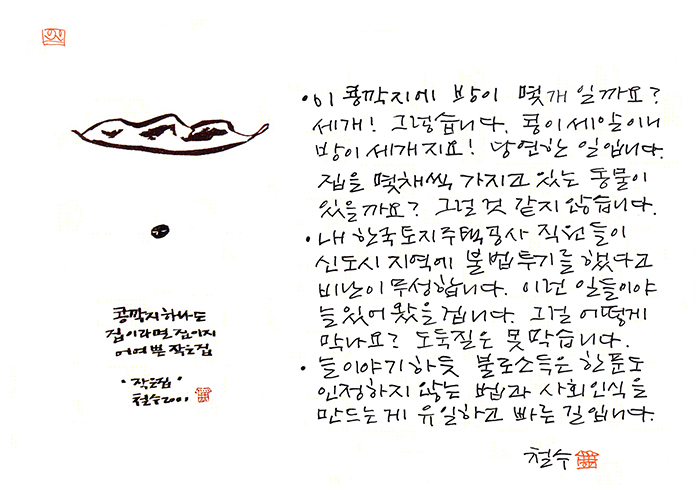 콩깍지 하나도
집이라면 집이지
어여쁜 작은집
"작은집"
철수 2001
• 이 콩깍지에 방이 몇개 일까요?
세개! 그렇습니다. 콩이 세알이니
방이 세개지요! 당연한 일입니다.
집을 몇채씩 가지고 있는 동물이
있을까요? 그럴것 같지 않습니다.
• 내 한국토지주택공사 직원들이
신도시 지역에 불법투기를 했다고
비난이 무성합니다. 이런 일들이야
늘 있어 왔을겁니다. 그걸 어떻게
막나요? 도둑질은 못막습니다.
• 늘 이야기 하듯 불로소득은 한푼도
인정하지 않는 법과 사회인식을
만드는게 유일하고 빠른 길입니다.
철수